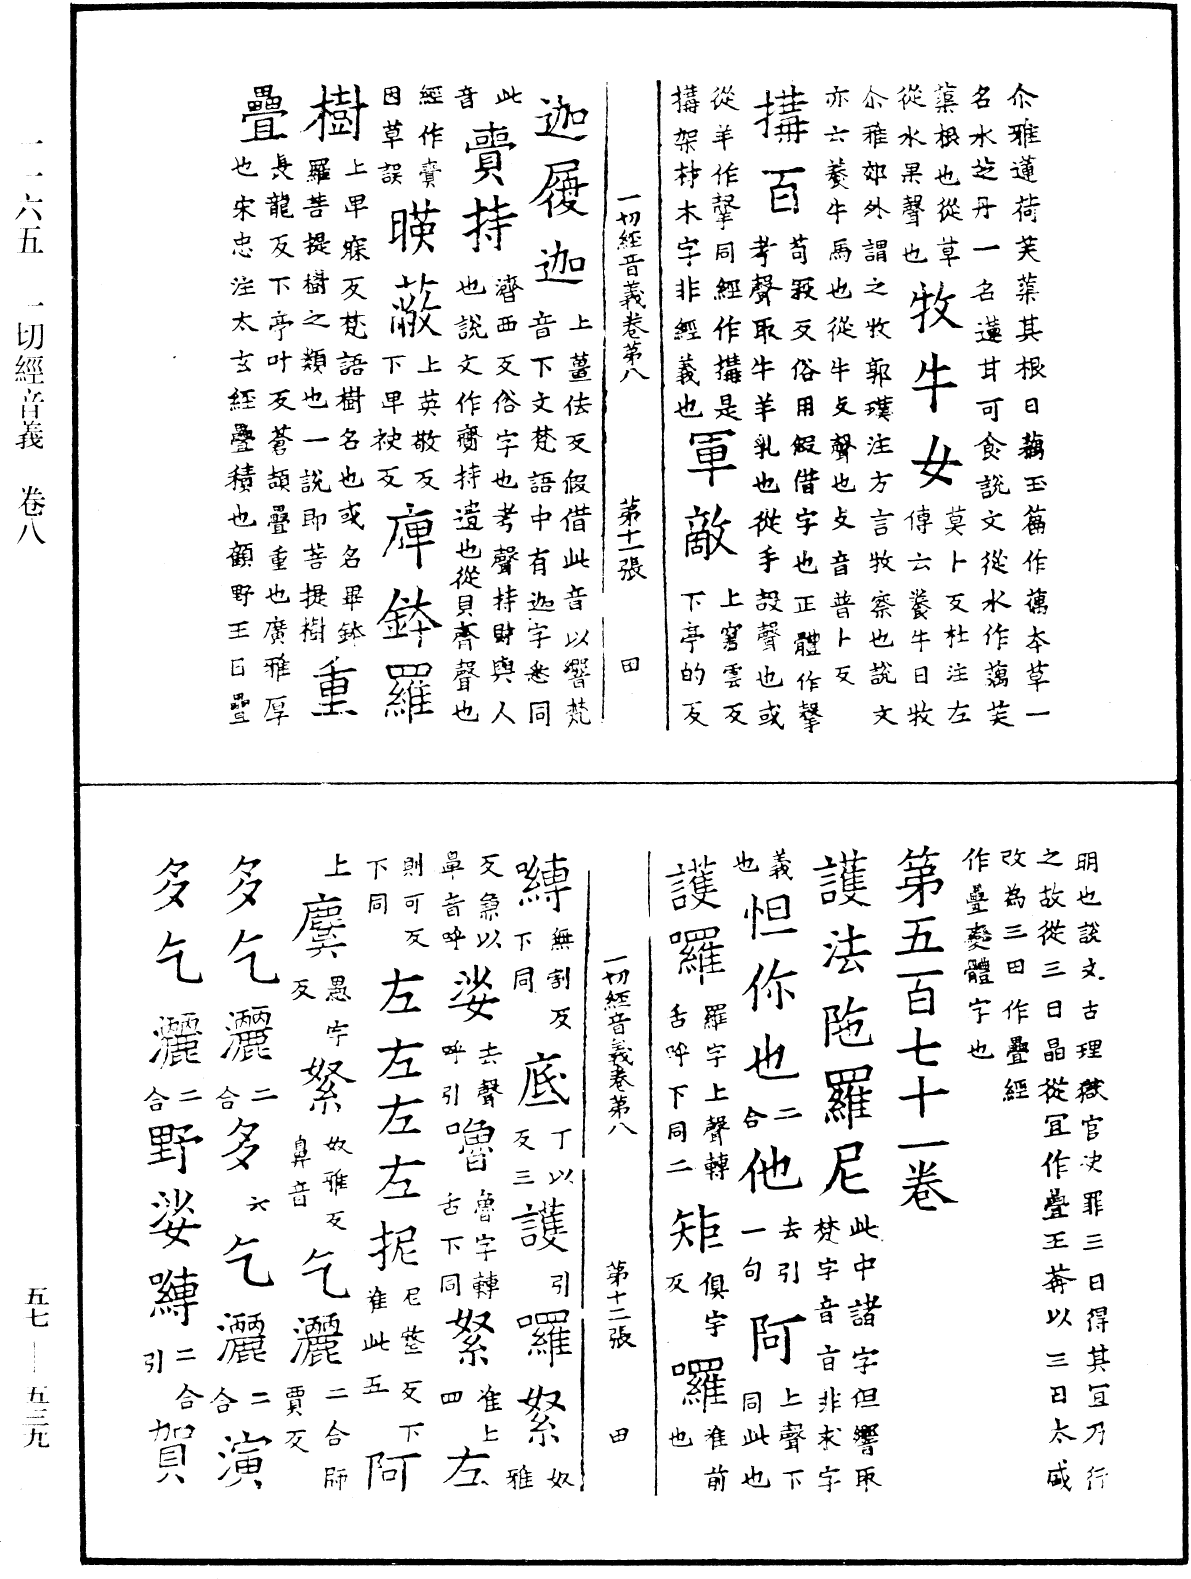 一一六五　一切經音義　卷八
尒雅蓮荷芙蕖其根曰藕玉篇作蕅本草一
名水芝丹一名蓮甘可食說文從水作藕芙
蕖根也從草
從水果聲也
牧牛女
莫卜反杜注左
傳云養牛曰牧
尒雅郊外謂之牧郭璞注方言牧察也說文
亦云養牛馬也從牛攴聲也攴音普卜反
搆百
苟䂓反俗用假借字也正體作㝅
考聲取牛羊乳也從手㝅聲也或
從羊作㝅同經作搆是
搆架材木字非經義也
軍敵
上窘雲反
下亭的反
一切經音義卷第八　第十一張　田
迦履迦
上薑佉反假借此音以響梵
音下文梵語中有迦字悉同
此
音
賷持
濟西反俗字也考聲持財與人
也說文作齎持遺也從貝齊聲也
經作賫
因草誤
暎蔽
上英敬反
下卑袂反
庳鉢羅
樹
上卑寐反梵語樹名也或名畢鉢
羅菩提樹之類也一說即菩提樹
重
疊
長龍反下亭叶反蒼頡疊重也廣雅厚
也宋忠注太玄經疊積也顧野王曰疊
明也說文古理獄官決罪三日得其宜乃行
之故從三日晶從宜作疊王莽以三日太盛
改為三田作疊經
作疊變體字也
第五百七十一卷
護法陁羅尼
此中諸字但響取
梵字音旨非求字
義
也
怛你也
二
合
他
去引
一句
阿
上聲下
同此也
護囉
羅字上聲轉
舌呼下同二
矩
俱宇
反
囉
准前
也
一切經音義卷第八　第十二張　田
嚩
無割反
下同
底
丁以
反三
護
引
囉䋈
奴
雅
反急以
鼻音呼
娑
去聲
呼引
嚕
魯字轉
舌下同
䋈
准上
四
左
則可反
下同
左左左左抳
尼𥮅反下
准此五
阿
上
麌
愚宇
反
䋈
奴雅反
鼻音
乞灑
二合師
賈反
多乞灑
二
合
多
六
乞灑
二
合
演
多乞灑
二
合
野娑嚩
二合
引
賀
五七—五三九